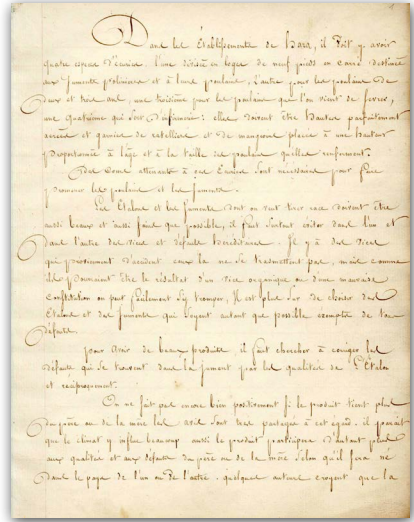 Dans les Établissements de haras, il doit y avoir
quatre espece d'écurie. l'une divisée en loges de neuf pieds en carré destinée
aux juments poulinieres et à leurs poulains, l'autre pour les poulains de
deux et trois ans, une troisième pour les poulains que l'on vient de sevrer,
une quatrieme qui sert d'infirmerie: elles doivent être hautes parfaitement
aérées et garnies de ratelliers et de mangeoires placés à une hauteur
proportionnée à l'âge et à la taille des poulains qu'elles renferment.
Des Cours attenants à ces Écuries sont necessaires pour faire
promener les poulains et les juments.
Les Étalons et les juments dont on veut tirer race doivent être
aussi beaux et aussi sains que possible, il faut surtout eviter dans l'un et
dans l'autre des vices et défauts héréditaires. Il y a des vices
qui proviennent d'accident ceux la ne se trasmettent pas, mais comme
ils pourraient être le résultat d'un vice organique ou d'une mauvaise
constitution on peut facilement s'y tromper. Il est plus sur de choisir des
Étalons et des juments qui soyent autant que possible exempts de tous
défauts.
pour avoir de beaux produits il faut chercher à corriger les
défauts qui se trouvent dans la jument par les qualités de l'Étalon
et reciproquement.
On ne sait pas encore bien positivement si le produit tient plus
du père ou de la mère les avis sont tres partagés à cet égard. il parait
que le climat y influe beaucoup aussi le produit participera d'autant plus
aux qualités et aux défauts du père ou de la mère selon qu'il sera né
dans le pays de l'un ou de l'autre. quelques auteurs croyent que la